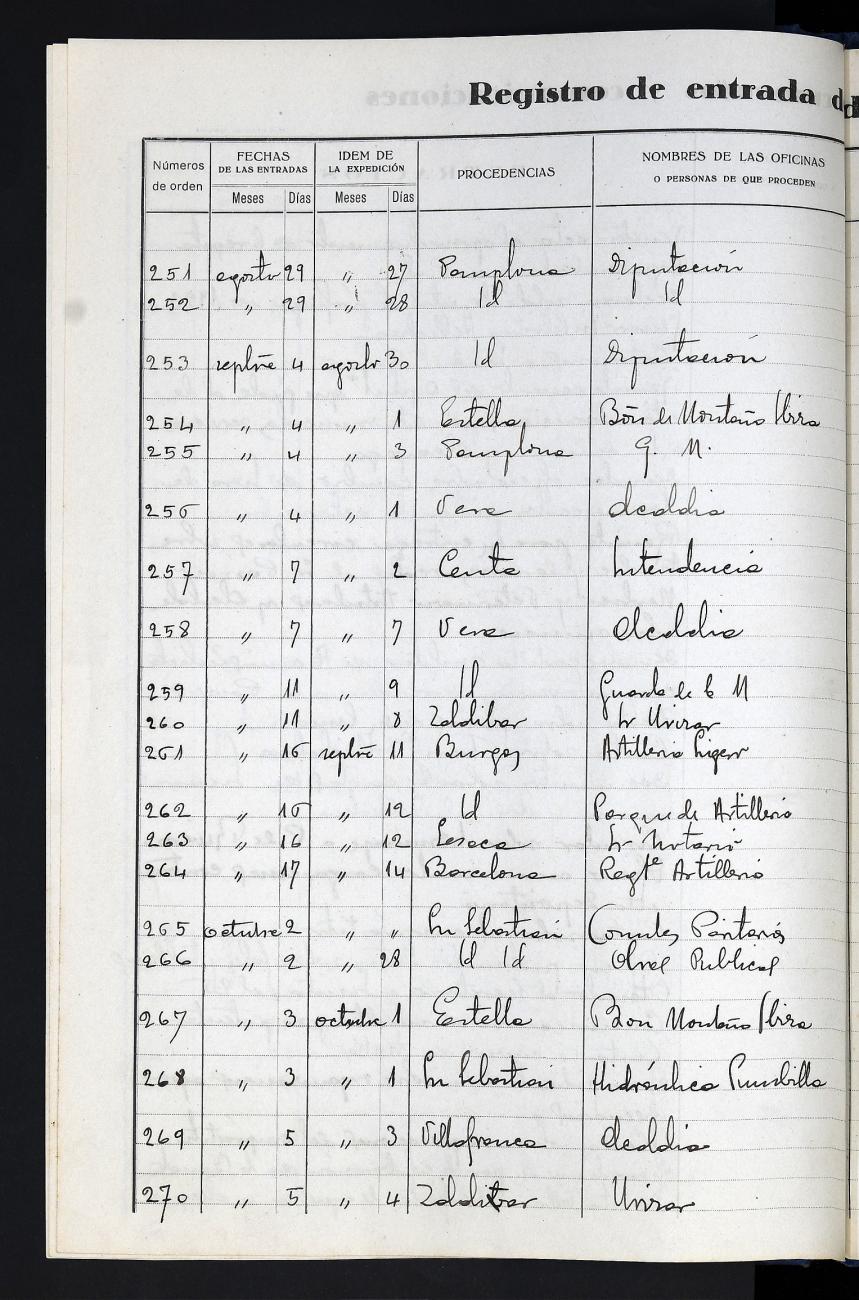 Registro de entrada d
Números de orden | FECHAS DE LAS ENTRADAS | IDEM DE LA EXPEDICIÓN | PROCEDENCIAS | NOMBRES DE LAS OFICINAS O PERSONAS DE QUE PROCEDEN
Meses | Días | Meses | Días
251 agosto 29 〃 27 Pamplona Diputación
252 〃 29 〃 28 Id Id
253 septbre 4 agosto 30 Id Diputación
254 〃 4 〃 1 Estella Bón de Montaña
255 〃 4 〃 3 Pamplona G. M.
256 〃 4 〃 1 Vera Alcaldia
257 〃 7 〃 2 Ceuta Intendencia
258 〃 7 〃 7 Vera Alcaldia
259 〃 11 〃 9 Id Guarda de M
260 〃 11 〃 8 Zaldibar Sr
261 〃 16 septbre 11 Burgos Artilleria Ligera
262 〃 16 〃 12 Id Parque de Artilleria
263 〃 16 〃 12 Lesaca Sr Notario
264 〃 17 〃 14 Barcelona Regte Artilleria
265 octubre 2 〃 〃 Sn Sebastian
266 〃 2 〃 28 Id Id Obras Publicas
267 〃 3 octubre 1 Estella Bon Montaña
268 〃 3 〃 1 Sn Sebastian Hidráulica
269 〃 5 〃 3 Villafranca Alcaldia
270 〃 5 〃 4 Zaldibar